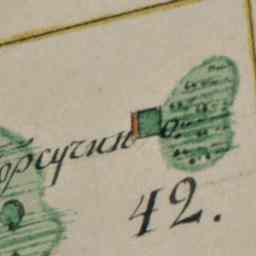 орсучино
42.